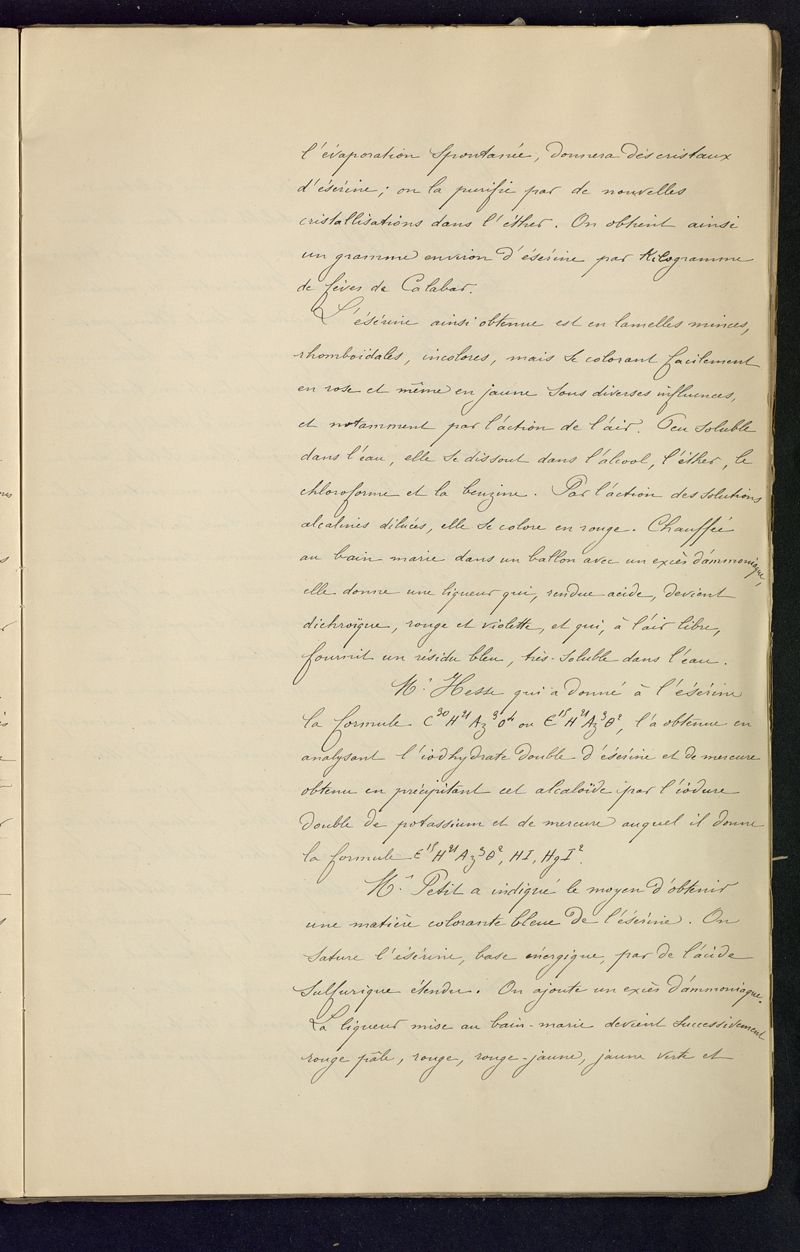 l'évaporation spontanée, donnera des cristaux
d'ésérine; on la purifie par de nouvelles
cristallisations dans l'éther. On obtient ainsi
un gramme environ d'ésérine par Kilogramme
de fèves de Calabar.
L'ésérine ainsi obtenue est en lamelles minces,
rhomboïdales, incolores, mais se colorant facilement
en rose et même en jaune sous diverses influences,
et notamment par l'action de l'air. Peu soluble
dans l'eau, elle se dissout dans l'alcool, l'éther, le
chloroforme et la benzine. Par l'action des solutions
alcalines diluées, elle se colore en rouge. Chauffée
au bain marie dans un ballon avec un excès d'ammoniaque,
elle donne une liqueur qui, rendue acide, devient
dichroïque, rouge et violette, et qui, à l'air libre,
fournit un résidu bleu, très-soluble dans l'eau.
Mr Hesse qui a donné à l'ésérine
la formule C³⁰H²¹Az³O⁴ ou Є¹⁵H²¹Az³Θ², l'a obtenue en
analysant l'iodhydrate double d'ésérine et de mercure
obtenu en précipitant cet alcaloïde par l'iodure
double de potassium et de mercure auquel il donne
la formule Є¹⁵H²¹Az³Θ², HI, HgI².
Mr Petit a indiqué le moyen d'obtenir
une matière colorante bleue de l'ésérine. On
sature l'ésérine, base énergique, par de l'acide
sulfurique étendu. On ajoute un excès d'ammoniaque.
La liqueur mise au bain-marie devient successivement
rouge pâle, rouge, rouge-jaune, jaune verte et